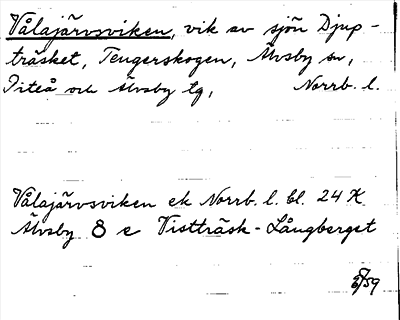 Vålajärvsviken, vik av sjön Djup-
träsket, Tengerskogen, Älvsby sn,
Piteå och Älvsby tg, Norrb. l.
Vålajärvsviken ek Norrb. l. bl. 24 K
Älvsby 8 e Vistträsk - Långberget